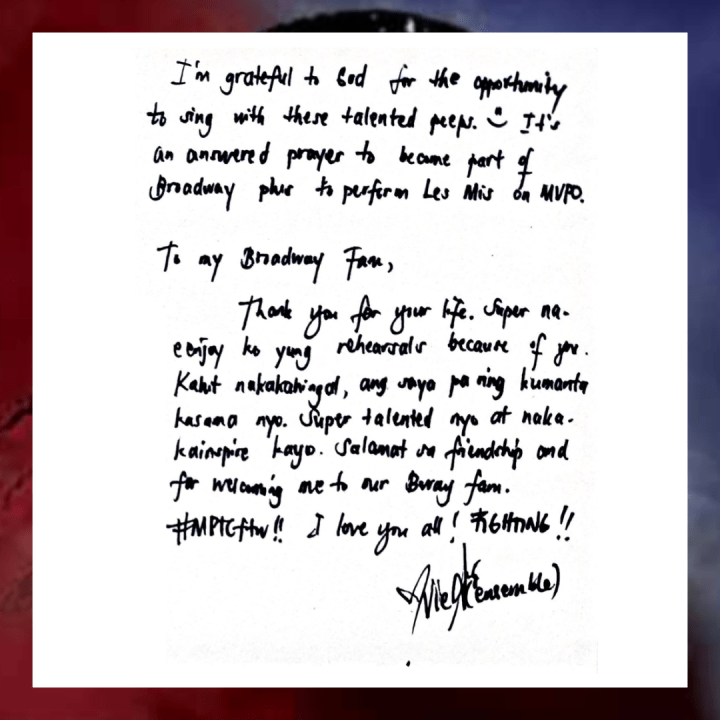 I'm grateful to God for the opportunity
to sing with these talented peeps. It's
an answered prayer to become part of
Broadway plus to perform Les Mis on MVPO.
To my Broadway Fam,
Thank you for your life. Super na-
eenjoy ko yung rehearsals because of you.
Kahit nakakahingal, ang saya pa ring kumanta
kasama nyo. Super talented nyo at naka-
kainspire kayo. Salamat sa friendship and
for welcoming me to our Bway fam.
#MPTCftw!! I love you all! FIGHTING!!
(ensemble)